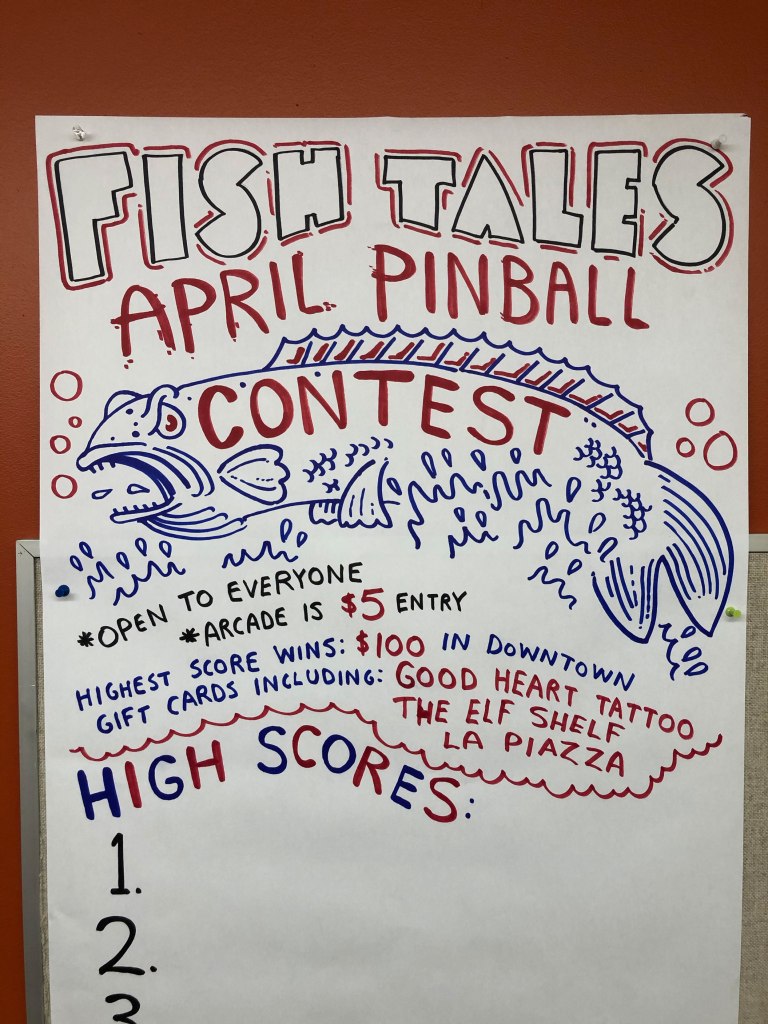 FISH TALES
APRIL PINBALL
CONTEST
*OPEN TO EVERYONE
*ARCADE IS $5 ENTRY
HIGHEST SCORE WINS: $100 IN DOWNTOWN
GIFT CARDS INCLUDING: GOOD HEART TATTOO
THE ELF SHELF
LA PIAZZA
HIGH SCORES:
1.
2.
3